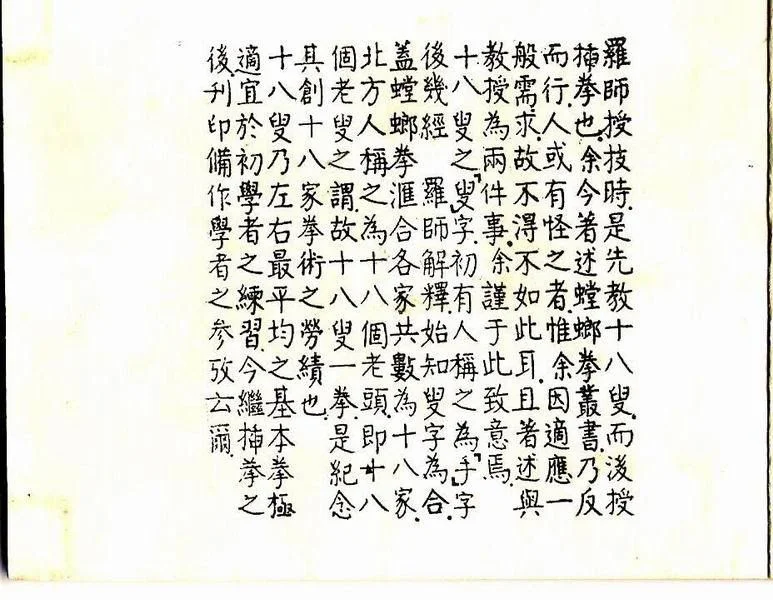 羅師授技時.是先教十八叟.而後授
插拳也.余今著述螳螂拳叢書.乃反
而行.人或有怪之者.惟余因適應一
般需求.故不得不如此耳.且著述與
教授為兩件事.余謹于此致意焉.
十八叟之「叟」字.初有人稱之為「手」字
後幾經　羅師解釋.始知叟字為合.
蓋螳螂拳滙合各家.共數為十八家.
北方人稱之為十八個老頭.即十八
個老叟之謂.故十八叟一拳.是紀念
其創十八家拳術之勞績也.
十八叟乃左右最平均之基本拳.極
適宜於初學者之練習.今繼插拳之
後.刊印備作學者之參攷云爾.